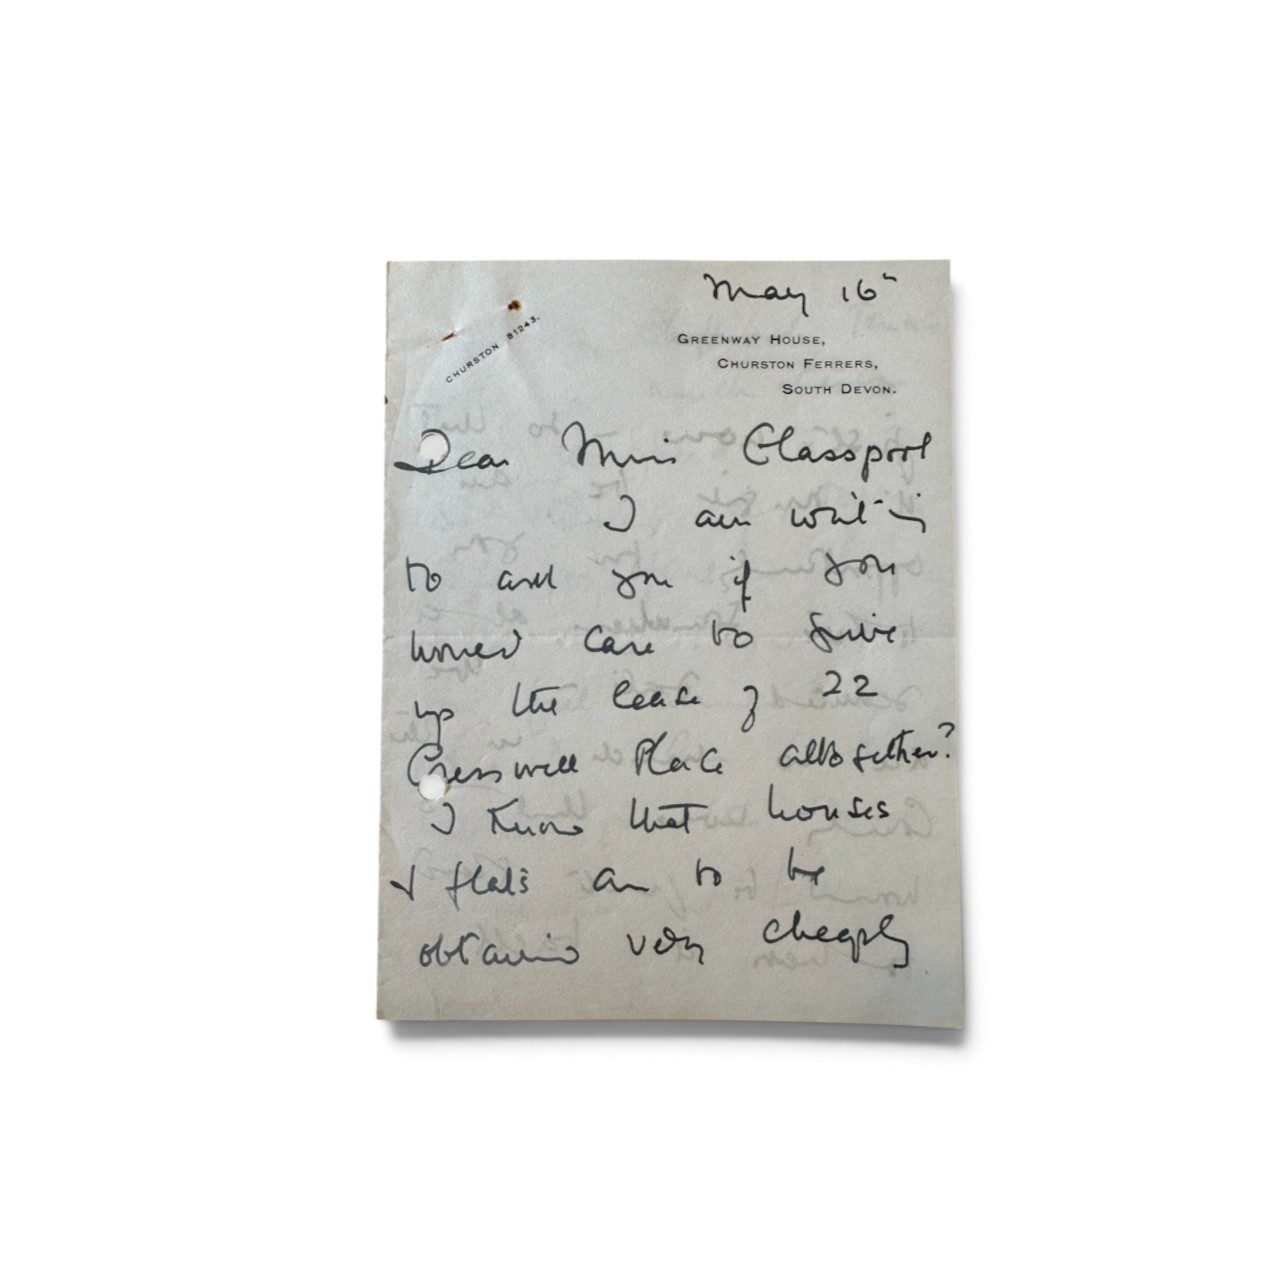 May 16th
CHURSTON 81243.
GREENWAY HOUSE,
CHURSTON FERRERS,
SOUTH DEVON.
Dear Miss Glasspool
I am writing
to ask you if you
would care to give
up the lease of 22
Cresswell Place altogether?
I know that houses
& flats are to be
obtained very cheaply